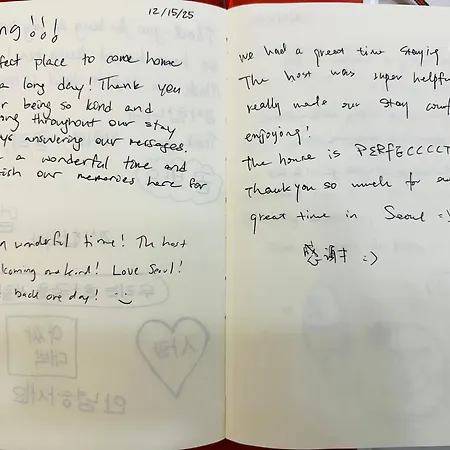 12/15/25
ng!!!
fect place to come home
a long day! Thank you
r being so kind and
ong throughout our stay
ys answering our messages.
a wonderful time and
ish our memories here for
wonderful time! The host
coming and kind! Love Seoul!
back one day! :)
we had a great time staying
The host was super helpfu
really made our stay com
enjoyong!
The house is PERFECCCCT
Thank you so much for
great time in Seoul =)
:)